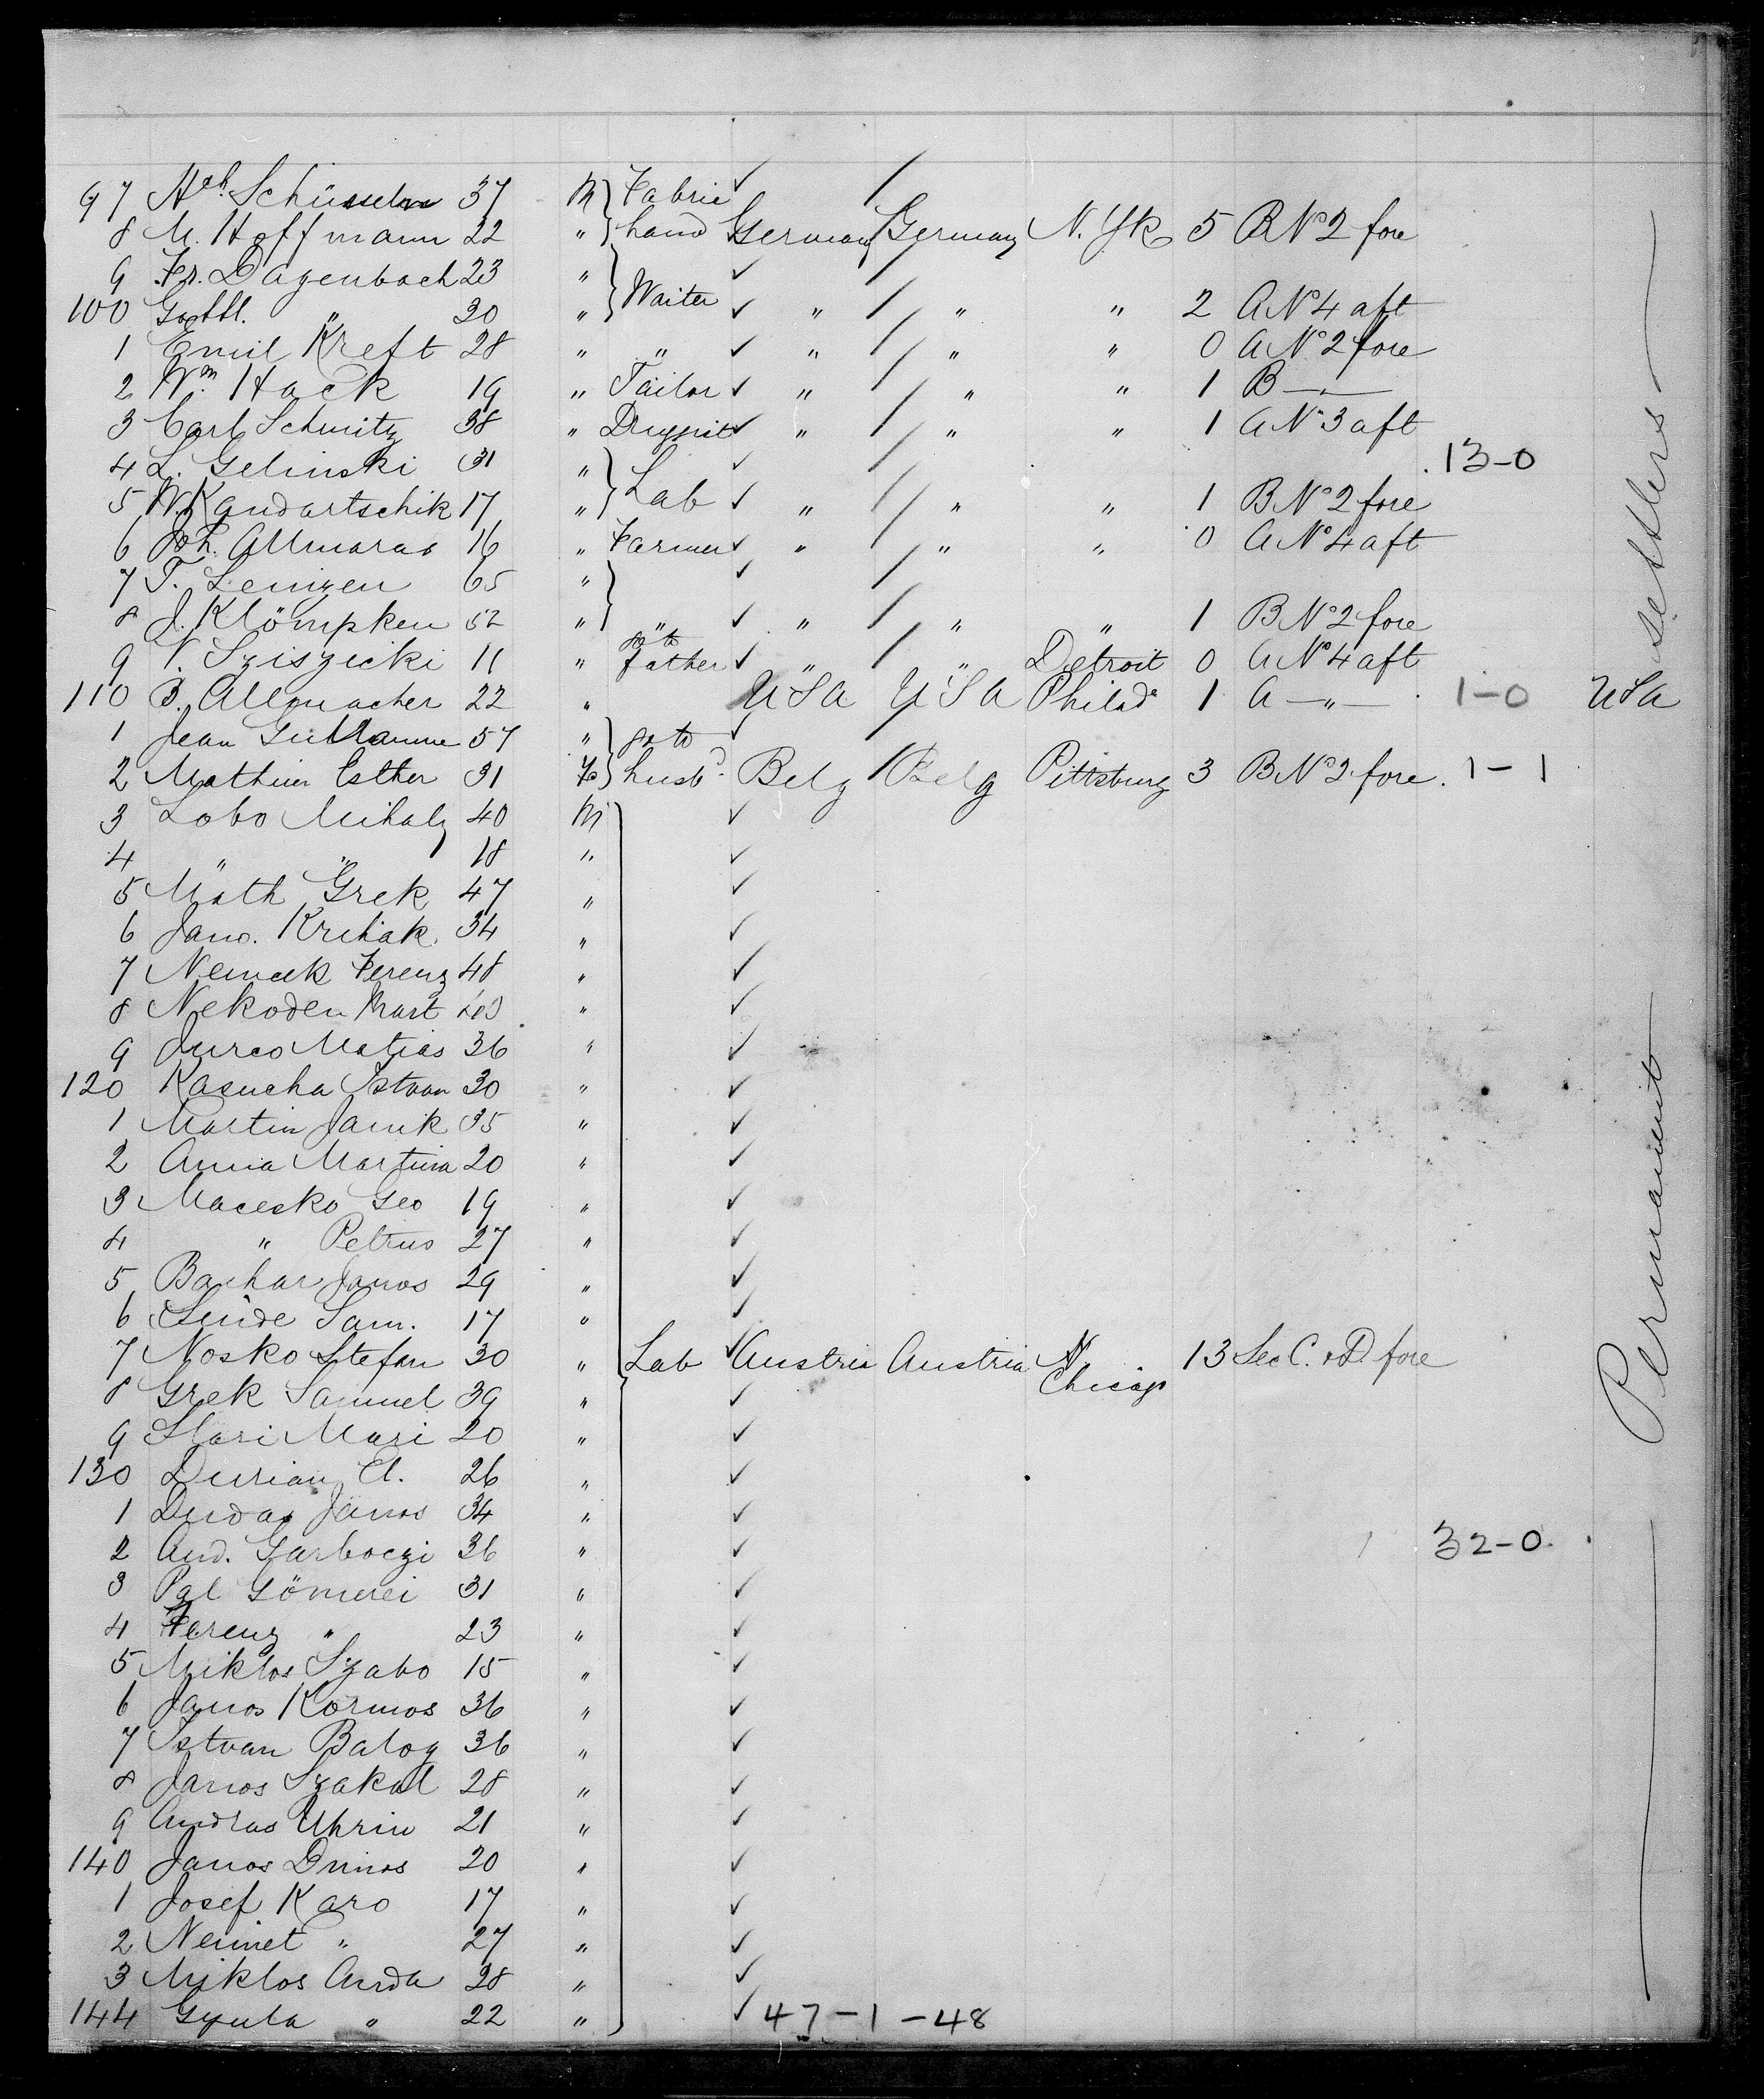 97 Hch. Schüsselm 37 M } Fabric
8 M. Hoffmann 22 " } hand Germany Germany N. Yk 5 B No 2 fore
9 Fr. Dagenbach 23 " }
100 Gottl. " 30 " } Waiter " " " 2 A No 4 aft
1 Emil Kreft 28 " " " " " 0 A No 2 fore
2 Wm. Hack 19 " Tailor " " " 1 B — " —
3 Carl Schmitz 38 " Druggist " " " 1 A No 3 aft
4 L. Gelinski 31 " } 13-0
5 W. Kandartschik 17 " } Lab " " " 1 B No 2 fore
6 Joh. Allmaras 16 " Farmer " " " 0 A No 4 aft
7 T. Lenizen 65 " }
8 J. Klömpken 52 " } " " " " 1 B No 2 fore
9 V. Sziszicki 11 " go to father " " Detroit 0 A No 4 aft
110 B. Allmacher 22 " USA USA Philad 1 A — " — 1-0 USA
1 Jean 57 " } go to
2 Mathieu Esther 31 Fe } husbd. Belg Belg Pittsburg 3 B No 2 fore. 1-1
3 Lobo Mihaly 40 M
4 " " 18 "
5 Math Grek 47 "
6 Jano. Krihak 34 "
7 Nemcek Ferenz 48 "
8 Nekoden Mart "
9 Jurco Matias 36 "
120 Kasucha Istvan 30 "
1 Martin Janik 35 "
2 Anna Martina 20 "
3 Macesko Geo 19 "
4 " Petrus 27 "
5 Bachar Janos 29 "
6 Sam. 17 "
7 Nosko Stefan 30 " Lab Austria Austria N. 13 Sec C. & D. fore
Chicago
8 Grek Samuel 39 "
9 Stari Mari 20 "
130 Durian El. 26 "
1 Dudas Janos 34 "
2 And. Garboczi 36 " 32-0.
3 Pal Gömerei 31 "
4 Ferenz " 23 "
5 Miklos Szabo 15 "
6 Janos Kormos 36 "
7 Istvan Balog 36 "
8 Janos Szakal 28 "
9 Andras Uhrin 21 "
140 Janos 20 "
1 Josef Karo 17 "
2 Neimet " 27 "
3 Miklos Anda 28 "
144 Gyula " 22 " 47-1-48
Permanent settlers